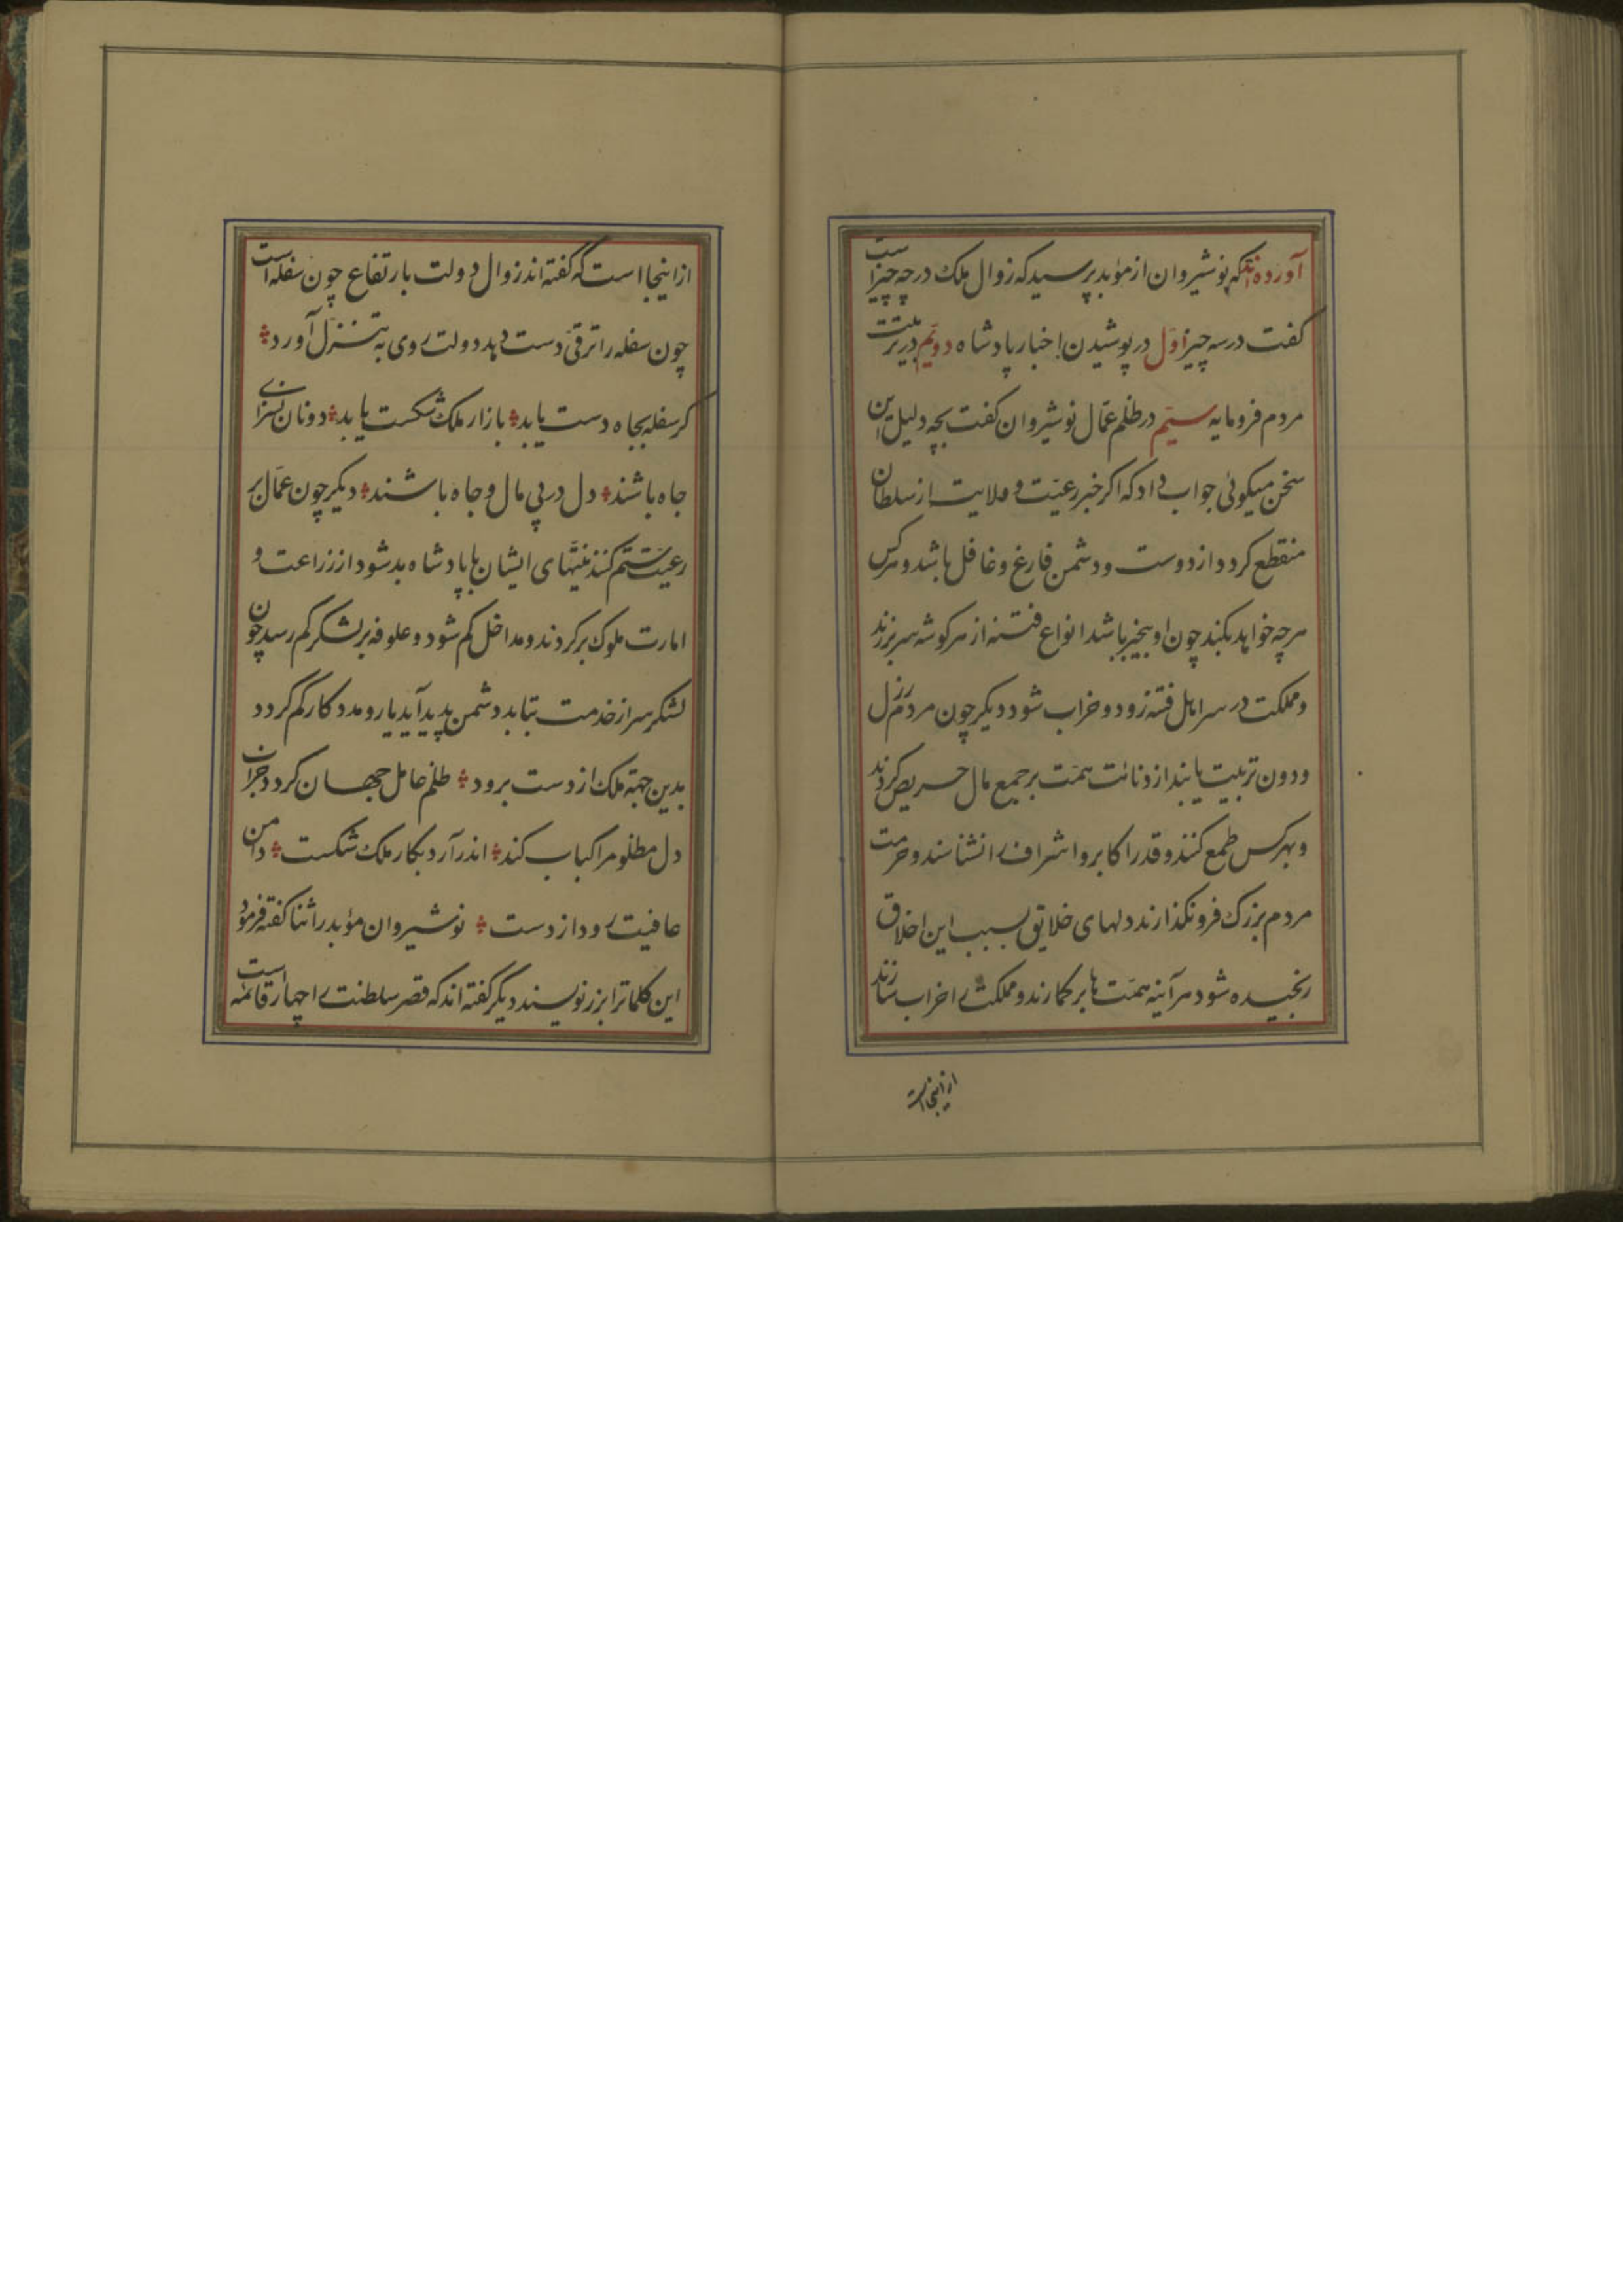 آورده‌اند که نوشیروان از مؤبد پرسید که زوال ملک در چه چیز است
کفت در سه چیز اوّل در پوشیدن اخبار پادشاه دویّم در تربیت
مردم فرومایه سیّم در ظلم عمّال نوشیروان کفت بچه دلیل این
سخن میکوئی جواب داد که اکر خبر رعیّت و ولایت از سلطان
منقطع کردد و از دوست و دشمن فارغ و غافل باشد و هرکس
هرچه خواهد بکند چون او بیخبر باشد انواع فتنه از هر کوشه سر برزند
و مملکت در سر اهل فتنه رود و خراب شود دیکر چون مردم رزل
و دون تربیت یابند از دنائت همّت بر جمع مال حریص کردند
و بهرکس طمع کنند و قدر اکابر و اشراف را نشناسند و حرمت
مردم بزرک فرو نکذارند دلهای خلایق بسبب این اخلاق
رنجیده شود هرآینه همّت ها برکمارند و مملکت را خراب سازند
از اینجا است
از اینجا است که گفته اند زوال دولت بارتفاع چون سفله است
چون سفله را ترقّی دست دهد دولت روی به تنزّل آورد
کر سفله بجاه دست یابد بازار ملک شکست یابد دونان نسزای
جاه باشند دل در پی مال و جاه باشند دیکر چون عمّال بر
رعیّت ستم کنند نیّتهای ایشان با پادشاه بد شود از زراعت و
امارت ملوک برکردند و مداخل کم شود و علوفه بر لشکر کم رسد چون
لشکر سر از خدمت بتابد دشمن پدید آید یار و مدد کار کم گردد
بدین جهة ملک از دست برود ظلم عامل جهان کردد خراب
دل مظلوم را کباب کند اندر آرد بکار ملک شکست دامن
عافیت رود از دست نوشیروان مؤبد را ثنا کفته فرمود
این کلمات را بزر نویسند دیگر گفته اند که قصر سلطنت را چهار قائمه است